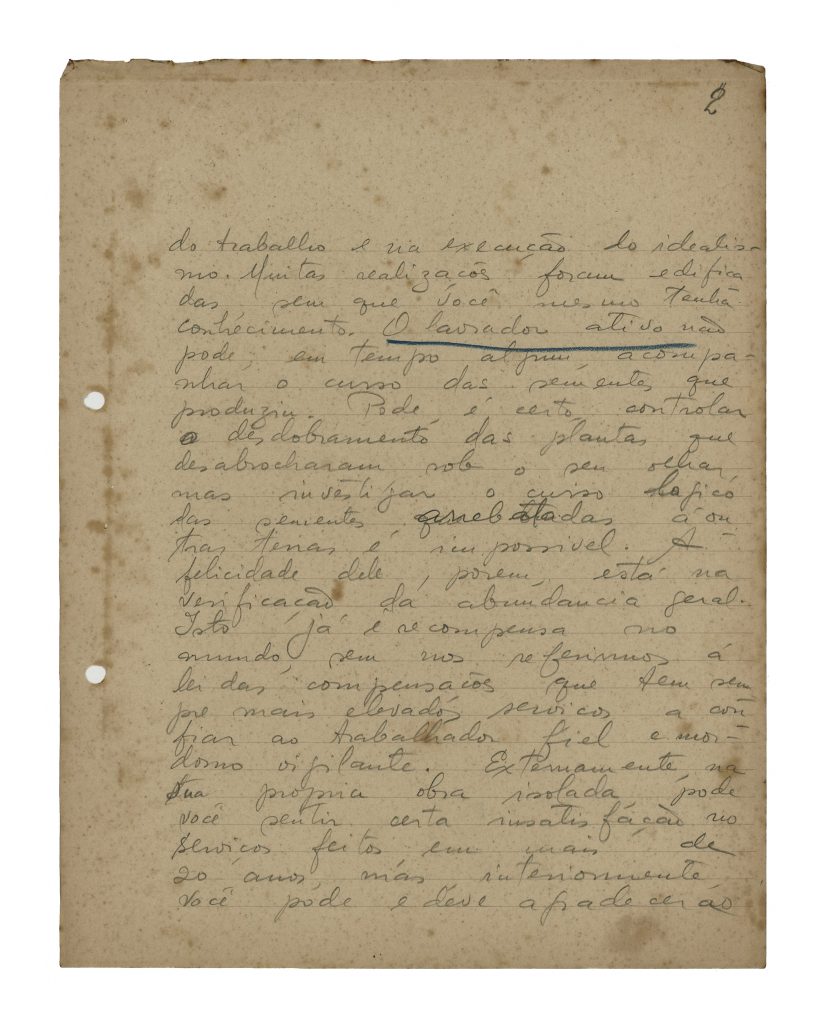 2
do trabalho e na execução do idealis-
mo. Muitas realizações foram edifica
das sem que você mesmo tenha
conhecimento. O lavrador ativo não
pode, em tempo algum acompa-
nhar o curso das sementes que
produziu. Pode, é certo, controlar
o desdobramento das plantas que
desabrocharam sob o seu olhar,
mas investigar o curso logico
das sementes arrebatadas á ou
tras terras é impossivel. A
felicidade dele, porem, está na
verificação da abundancia geral.
Isto já é recompensa no
mundo, sem nos referirmos á
lei das compensações que tem sem
pre mais elevados serviços a con
fiar ao trabalhador fiel e mor-
domo vigilante. Externamente, na
sua propria obra isolada pode
você sentir certa insatisfação no
serviços feitos em mais de
20 anos, mas interiormente
você póde e deve agradecer ao